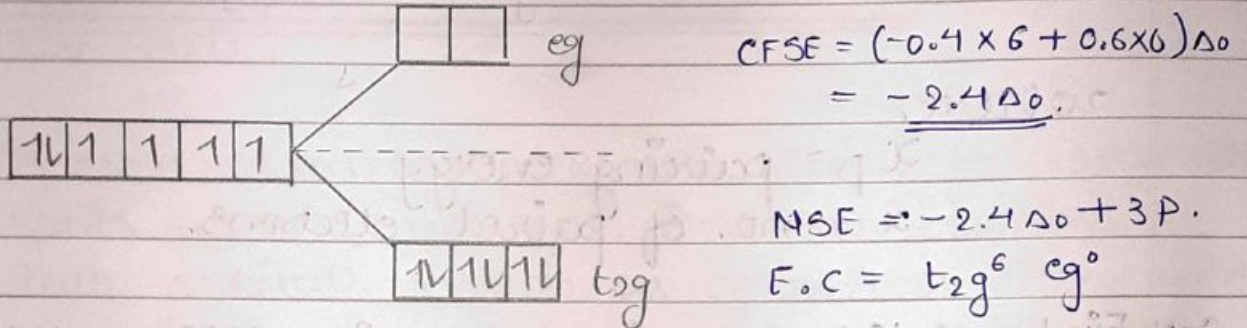 eg
CFSE = (-0.4 × 6 + 0.6×0) Δo
= -2.4 Δo.
1L 1 1 1 1
NSE = -2.4 Δo + 3P.
1L 1L 1L t2g
E.C = t2g⁶ eg⁰